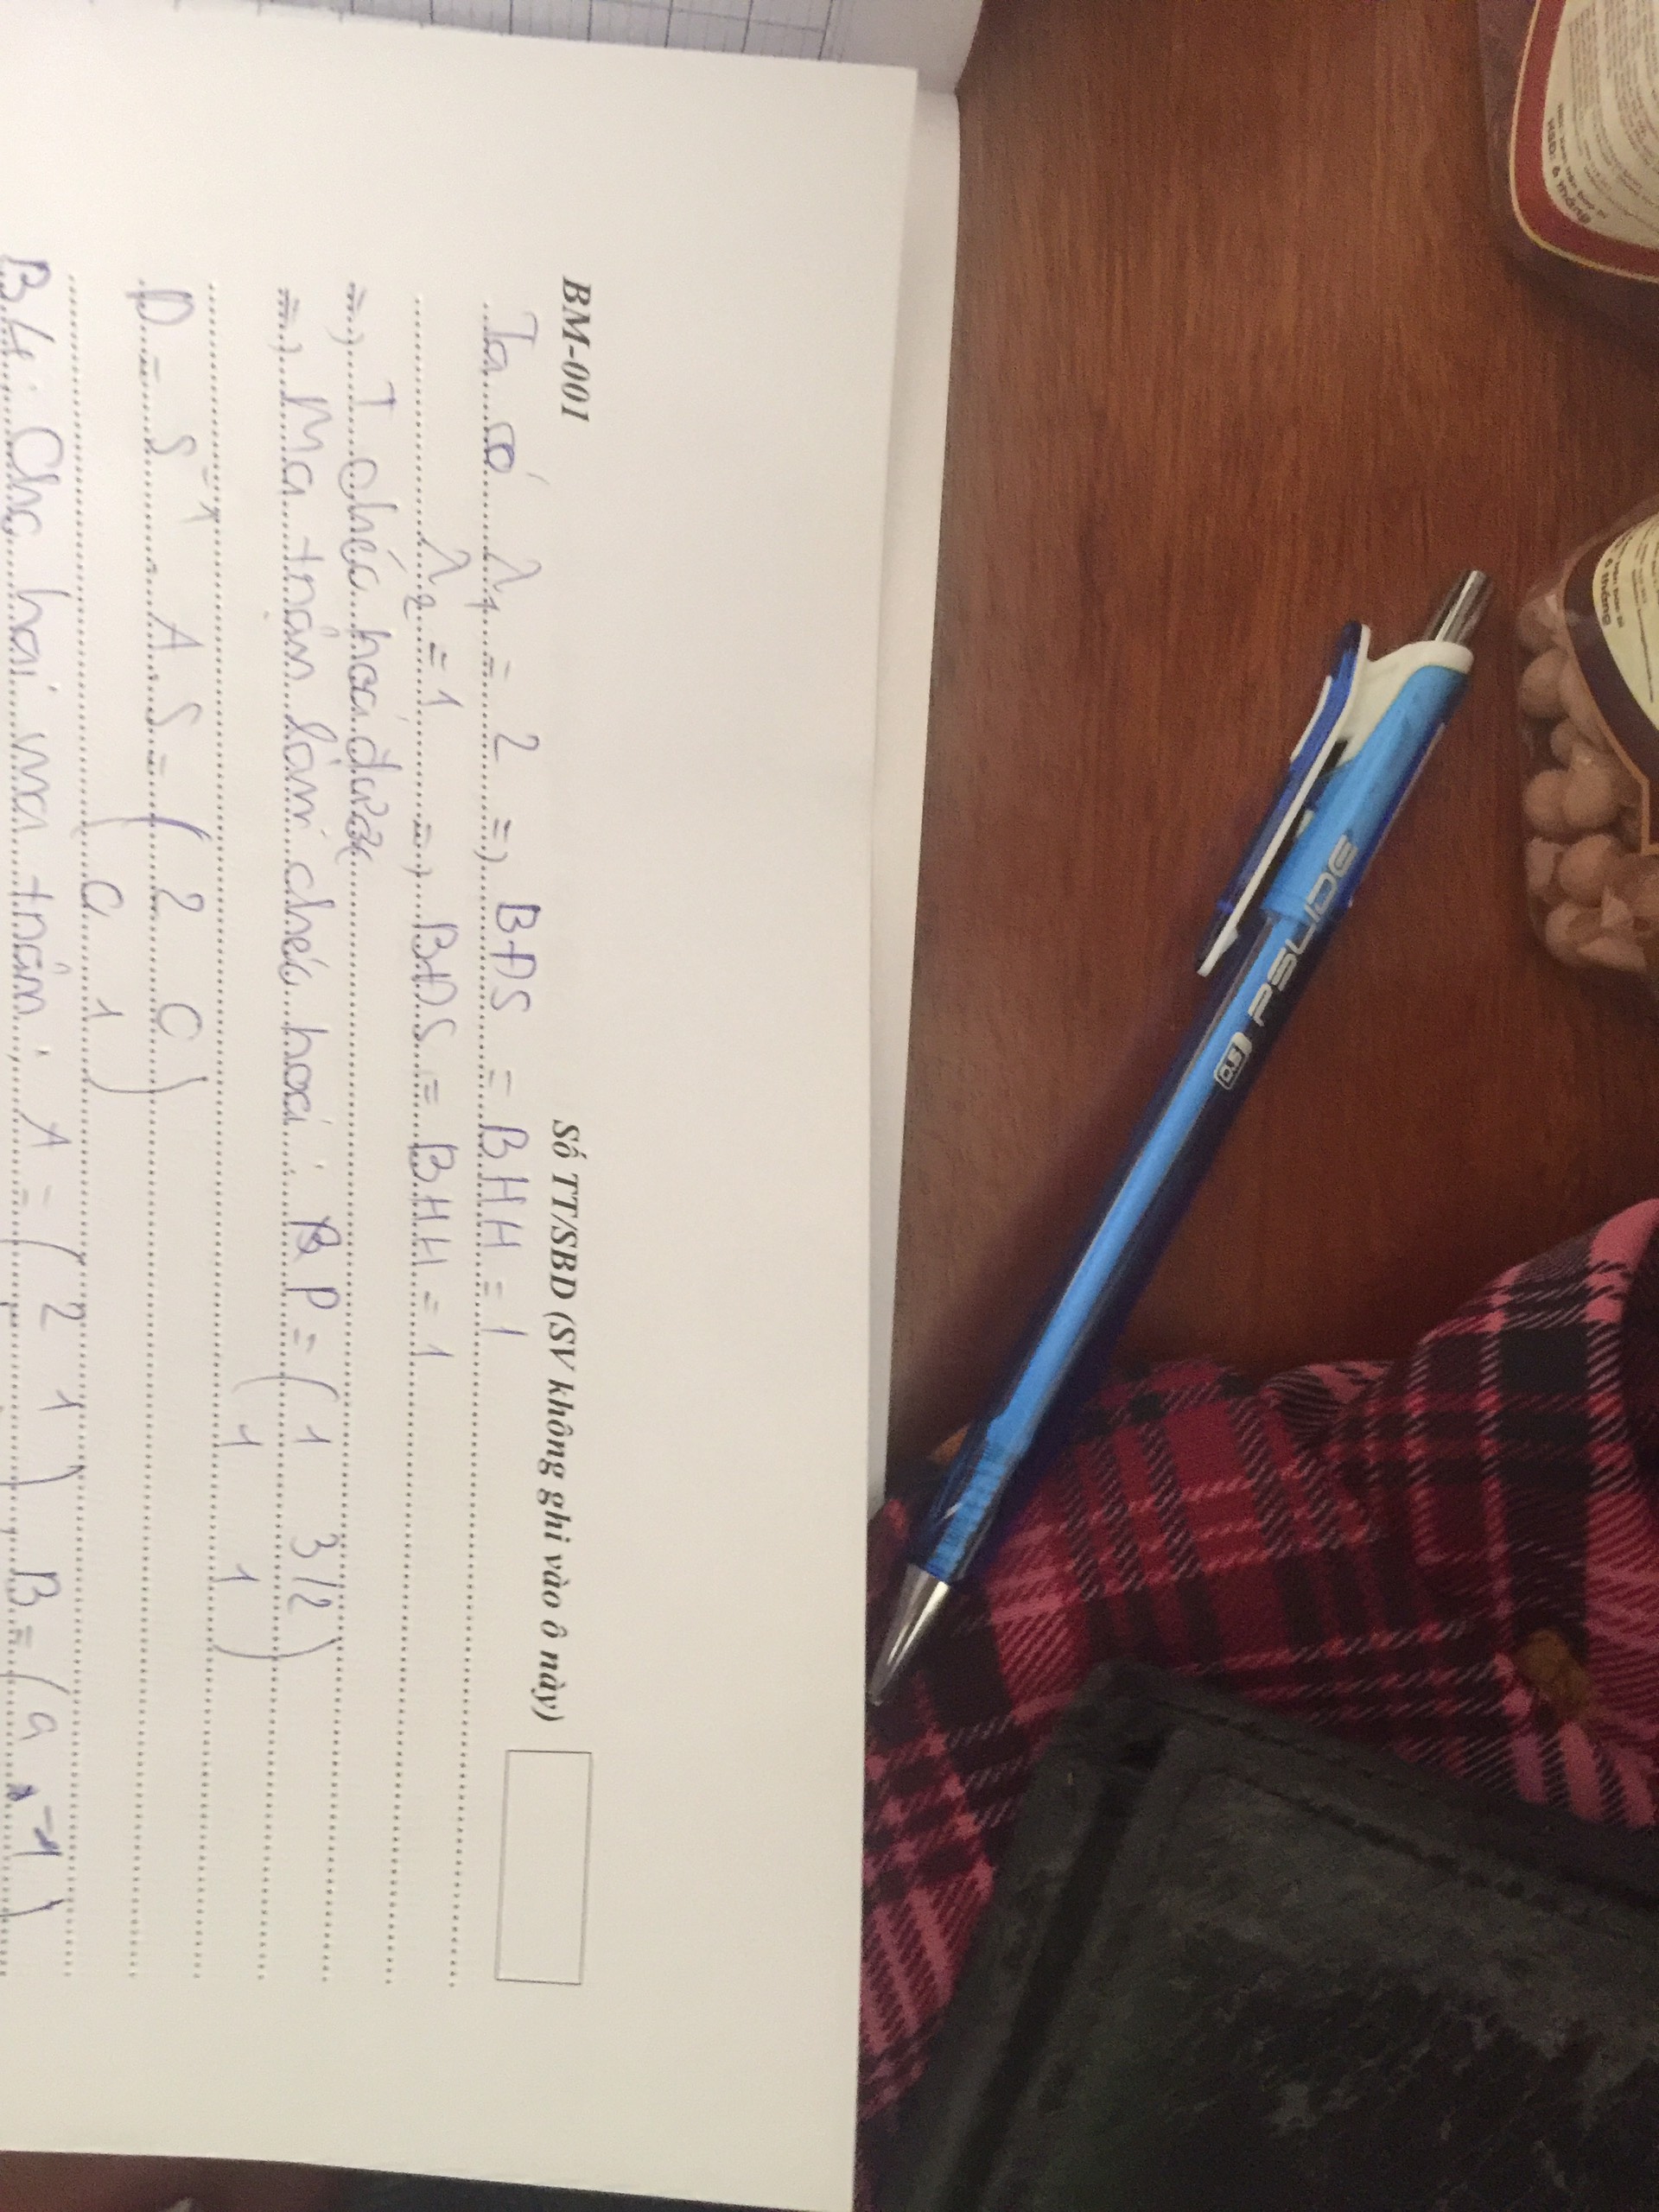 BM-001 Số TT/SBD (SV không ghi vào ô này)
Ta có λ1 = 2 => BĐS = BHH = 1
λ2 = 1 => BĐS = BHH = 1
=> T chéo hoá được
=> Ma trận làm chéo hoá: P = ( 1 3/2 )
1 1 )
D = S⁻¹ . A.S = ( 2 0 )
( 0 1 )
B4: Cho hai ma trận: A = ( 2 1 ), B = ( a -1 )
PSLIDE
0.5
HSD: 6 tháng
6 tháng